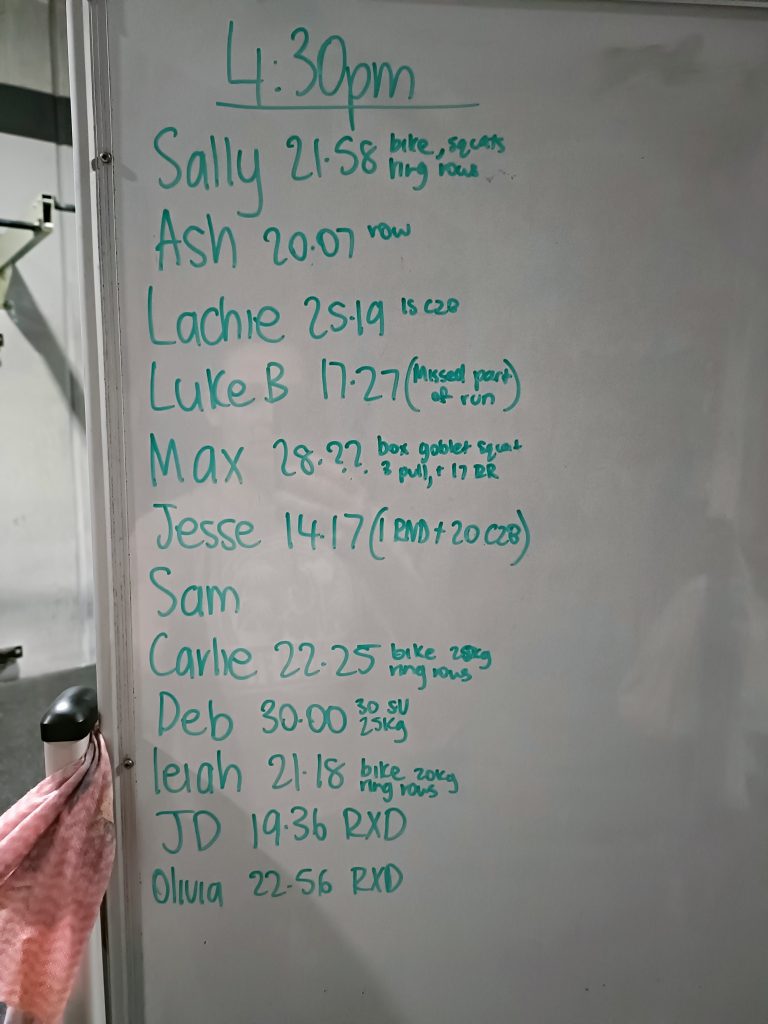 4:30pm
Sally 21.58 bike, squats
ring rows
Ash 20.07 row
Lachie 25.19 15 C2B
Luke B 17.27 (Missed part
of run)
Max 28.22 box goblet squat
3 pull, + 17 RR
Jesse 14.17 (1 RND + 20 C2B)
Sam
Carlie 22.25 bike
ring rows
Deb 30.00 30 SU
25kg
leiah 21.18 bike 20kg
ring rows
JD 19.36 RXD
Olivia 22.56 RXD